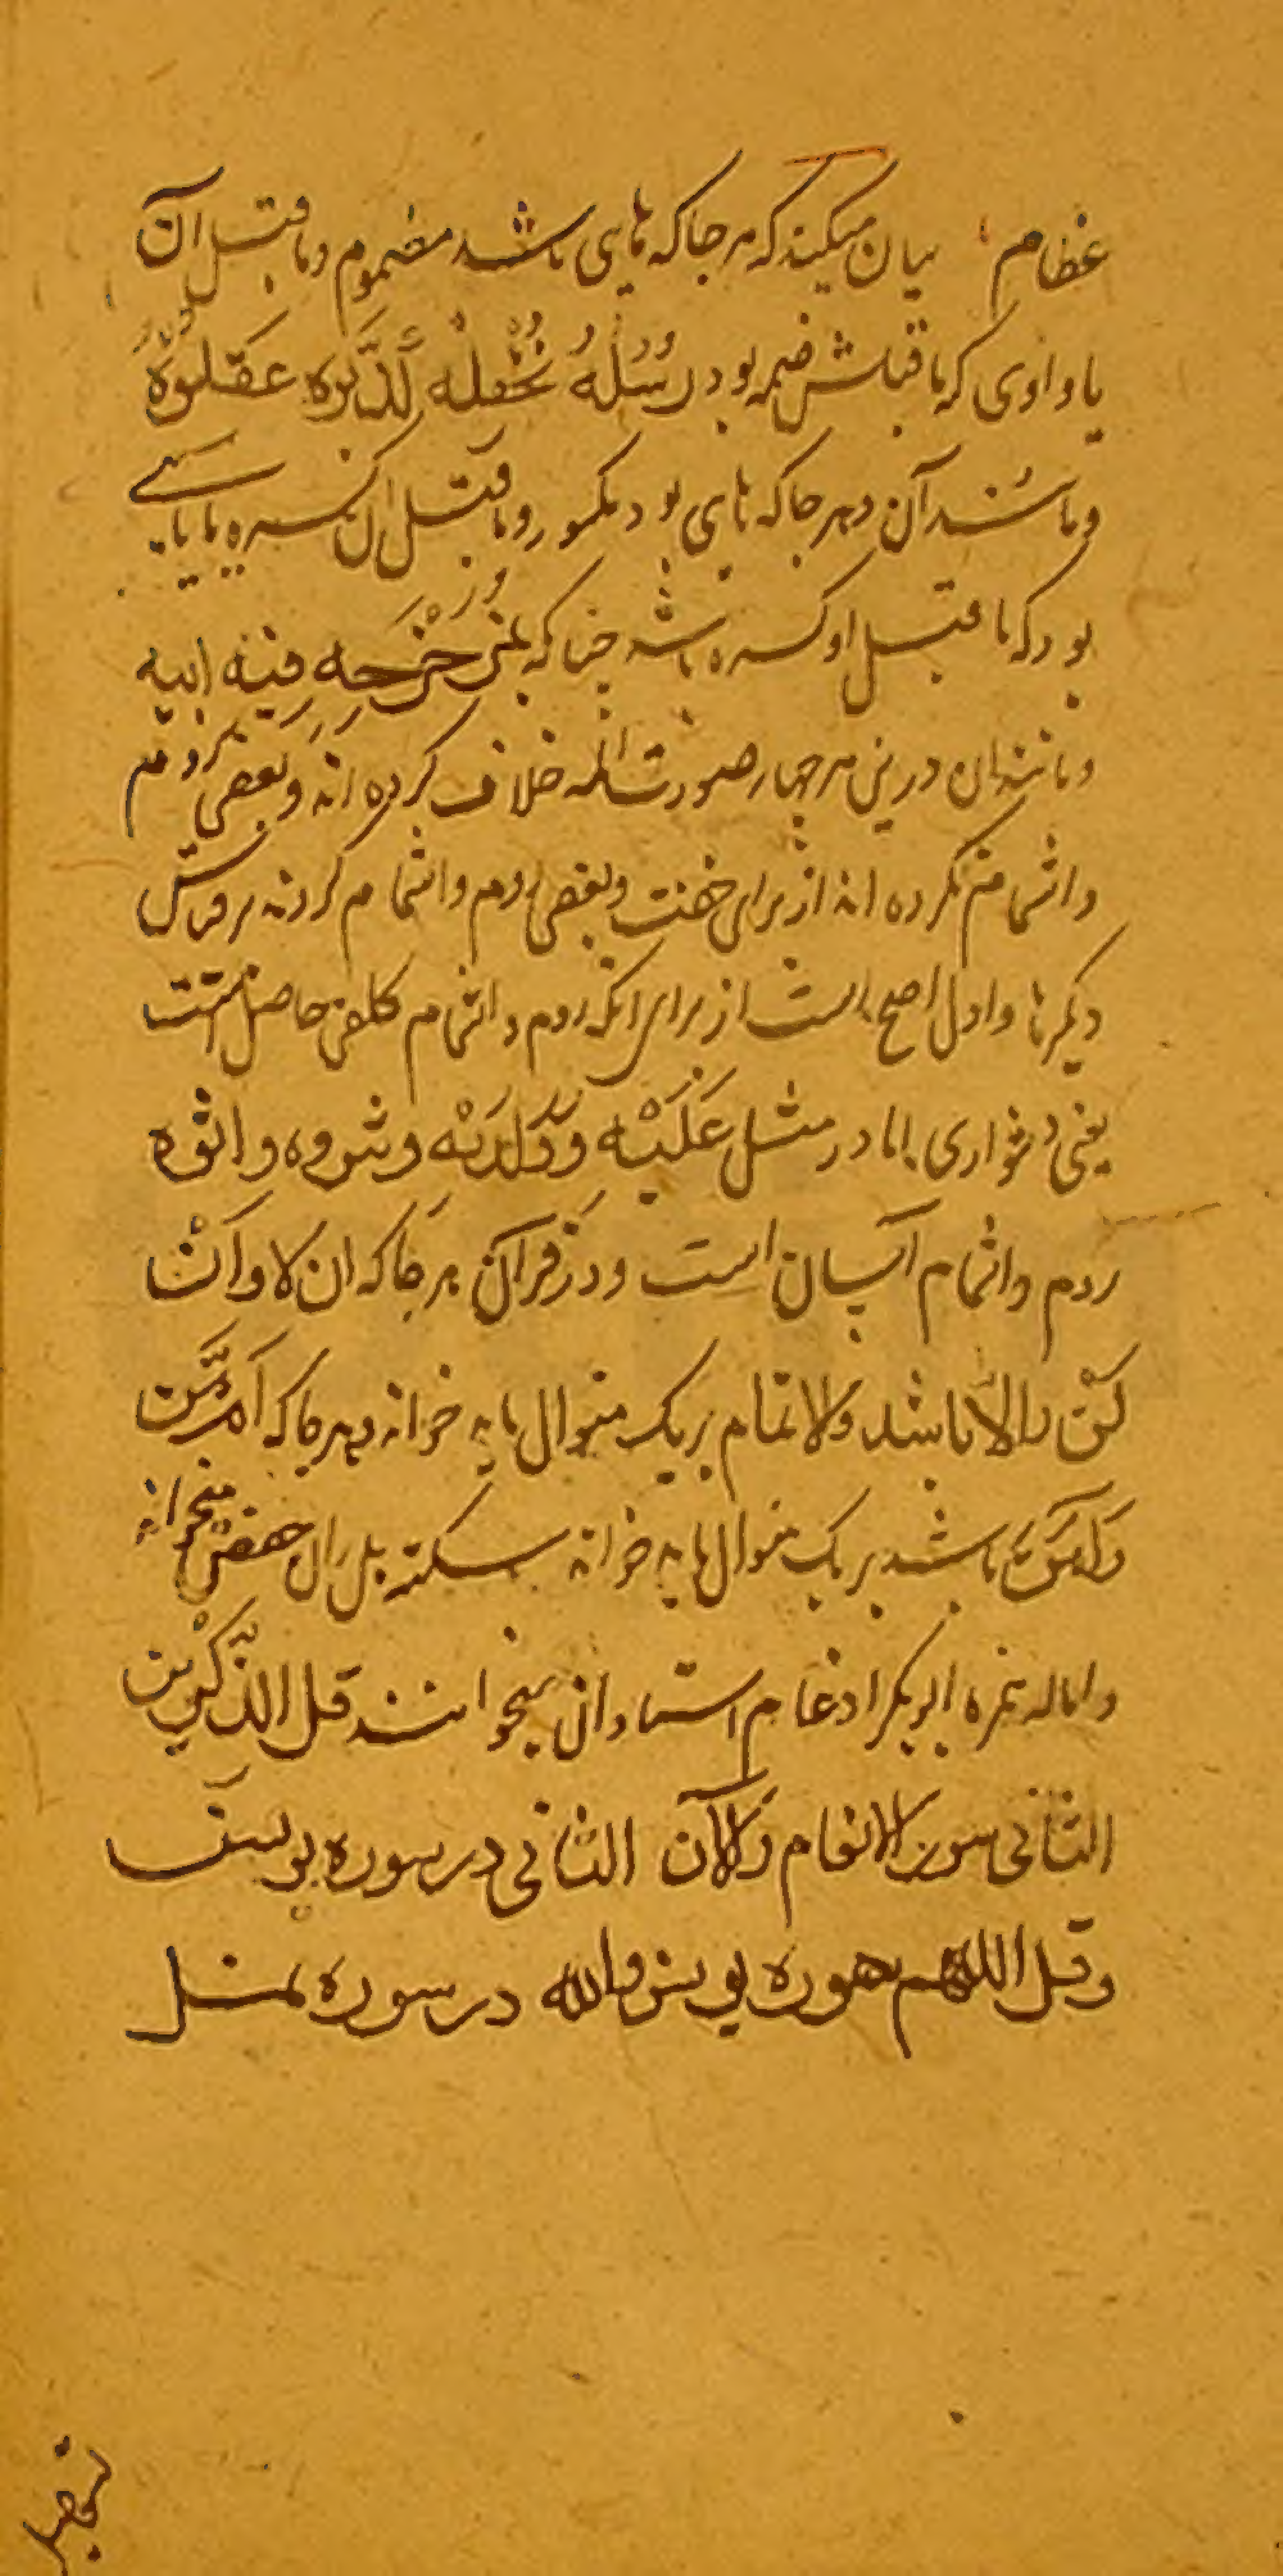 عظام بیان میکند که هر جا که های باشد مضموم و ماقبل آن
یا واوی که ماقبلش ضمه بود رسُلُهُ نُخْلِفُهُ لَّدَیْره عَقَلُوهُ
و مانند آن و هر جا که های بود مکسور و ماقبل ان کسره یا یایے
بود که ماقبل او کسره باشد چنانکه بمُزَحْزِحِه فیه ابیه
و مانند ان درین هر چهار صورت ائمه خلاف کرده اند و بعضی روم
و اشمام نکرده اند از برای خفت و بعضی روم و اشمام کردند بر قیاس
دیگرها و اول اصح است از برای انکه روم و اشمام کلفتی حاصل است
یعنی دشواری اما در مثل عَلَیْه و لدیه و شروه و اتوه
روم و اشمام آسان است و در قرآن هر جا که ان لا و اَنْ
لَنْ و الّا باشد و لا تمام بریک منوال باید خواند و هر جا که اَم مَّن
و اَمَّنْ باشد بر یک منوال باید خواند سکته بل ران حفص میخواند
و اماله حمزه ابوبکر ادغام استادان میخوانند قل آلذّکرین
الثانی سورة الانعام و آلآن الثانی در سوره یوسف
و قل اللهم سوره یونس و الله در سوره نمل